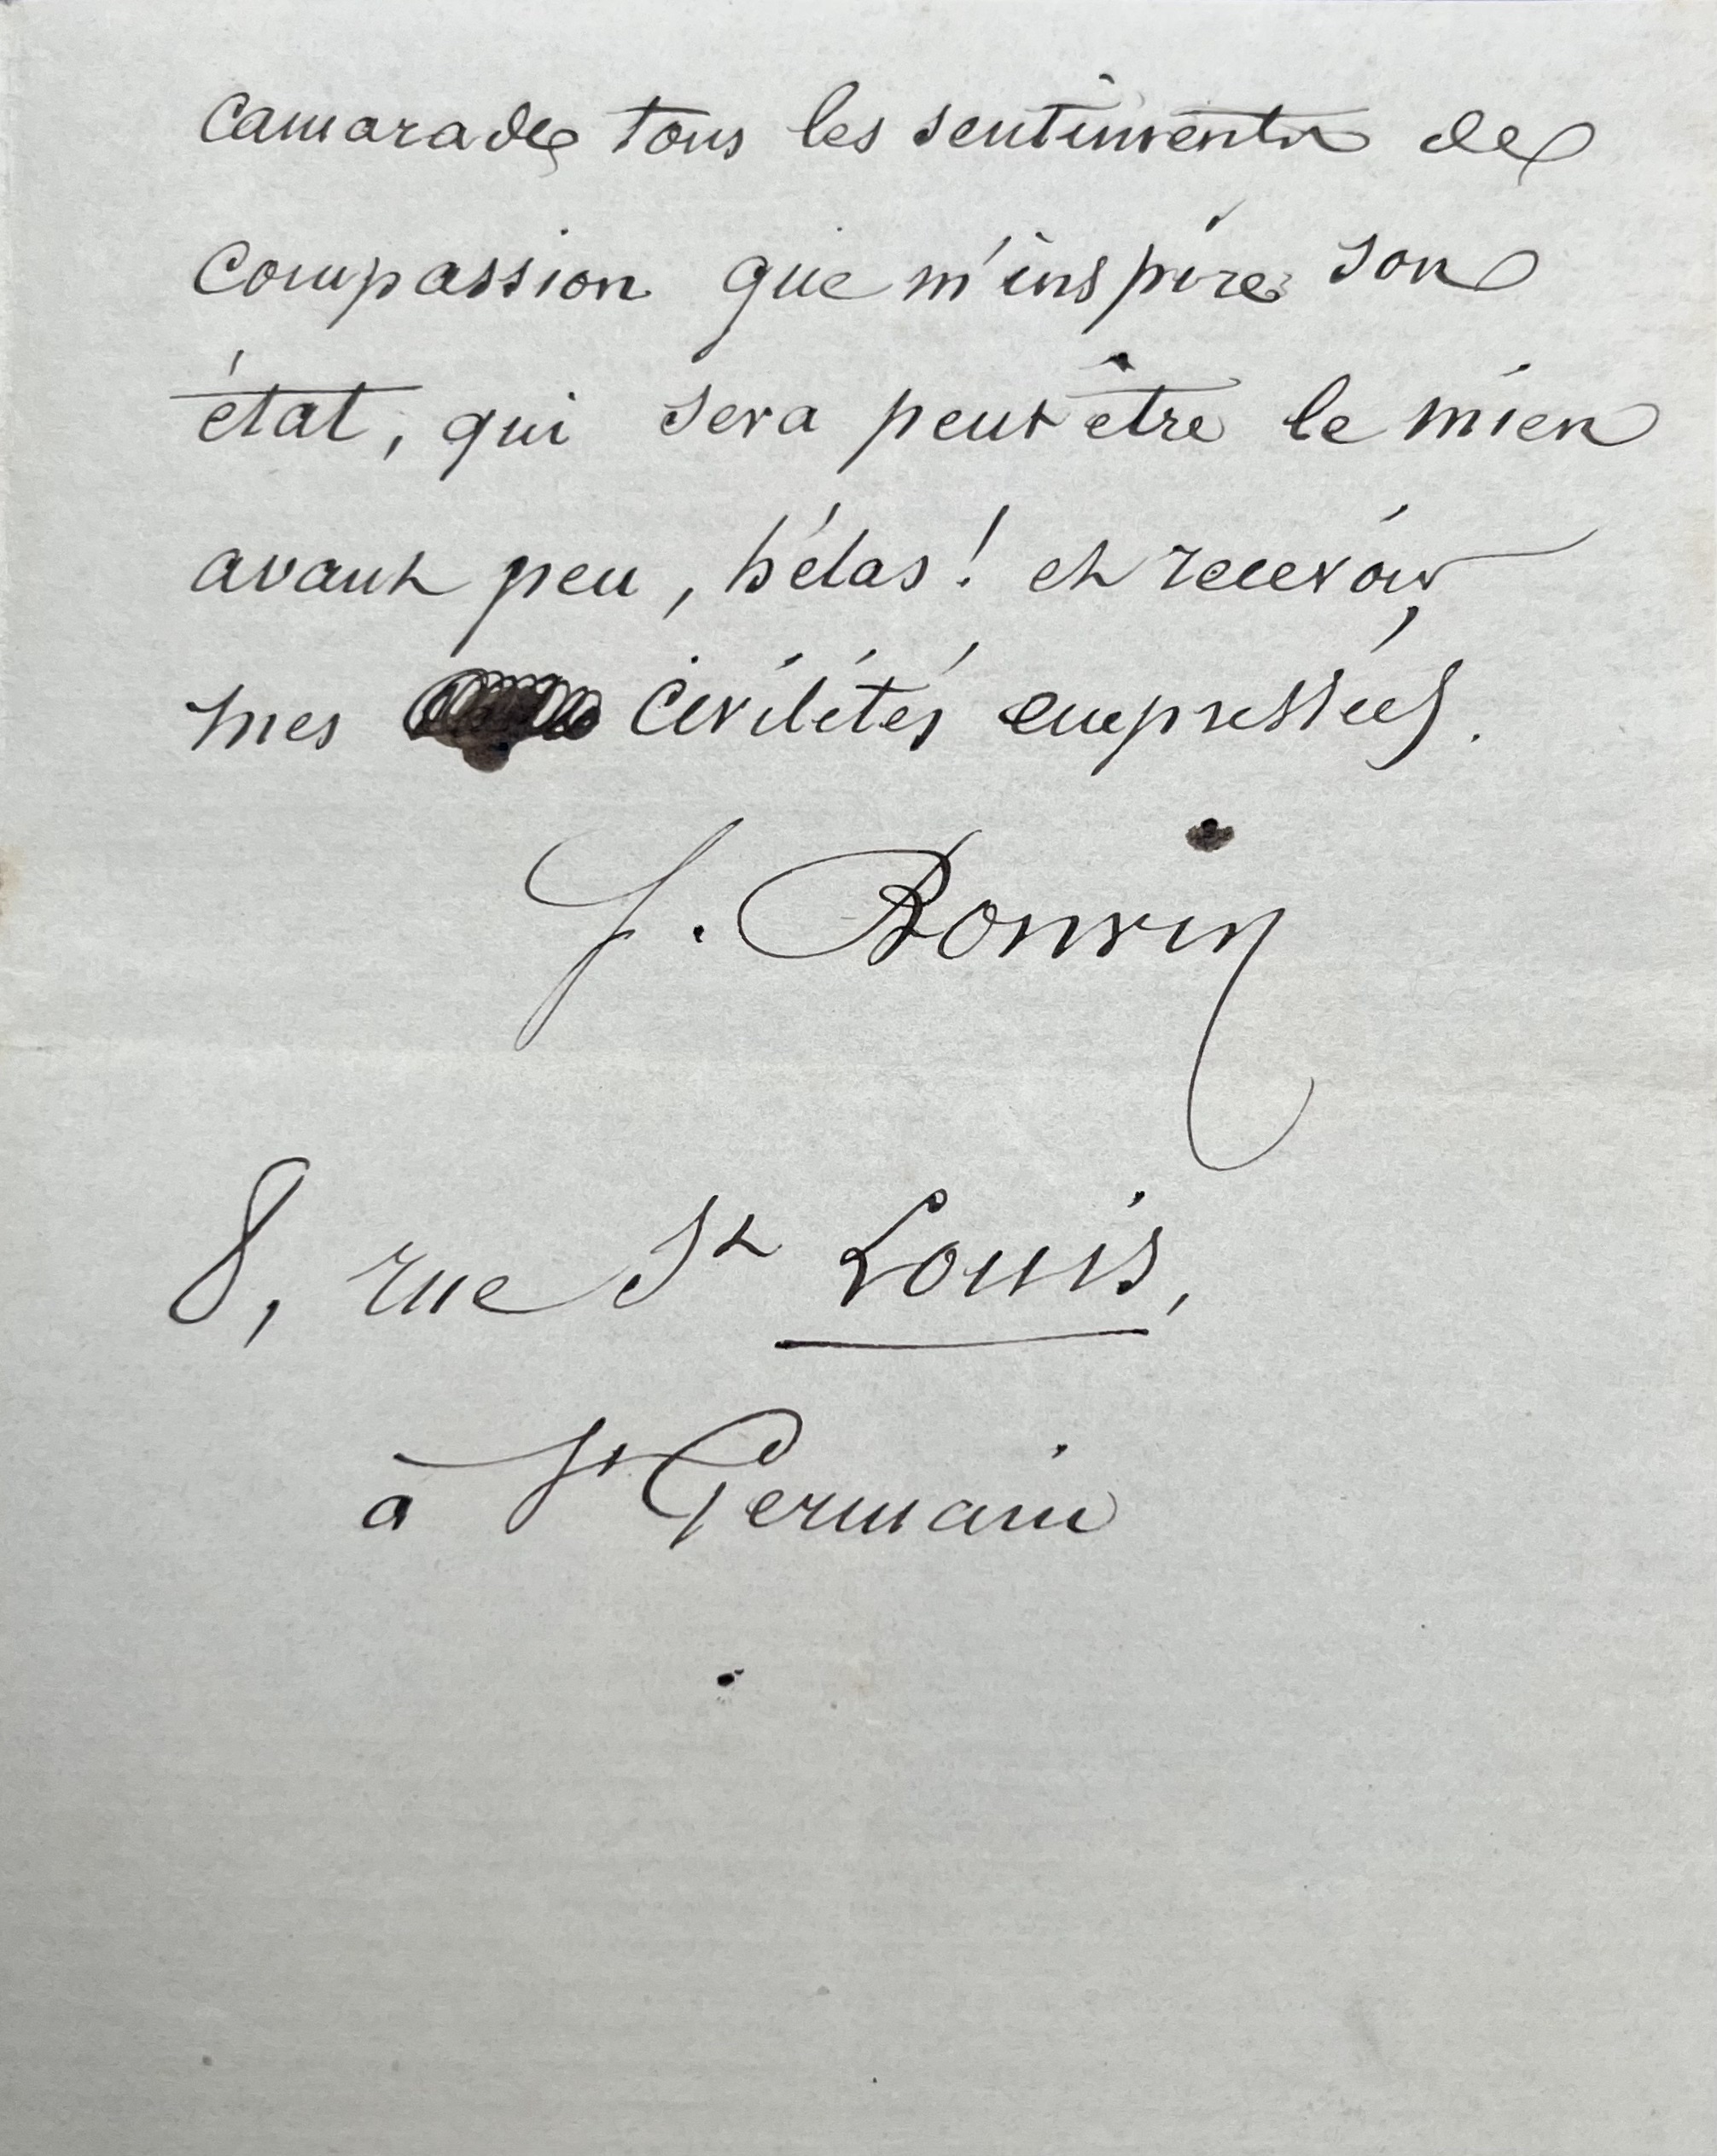 camarade tous les sentiments de
compassion que m'inspire son
état, qui sera peut être le mien
avant peu, hélas! et recevoir
mes civilités empressées.
f. Bonvin
8, rue St Louis,
à St Germain